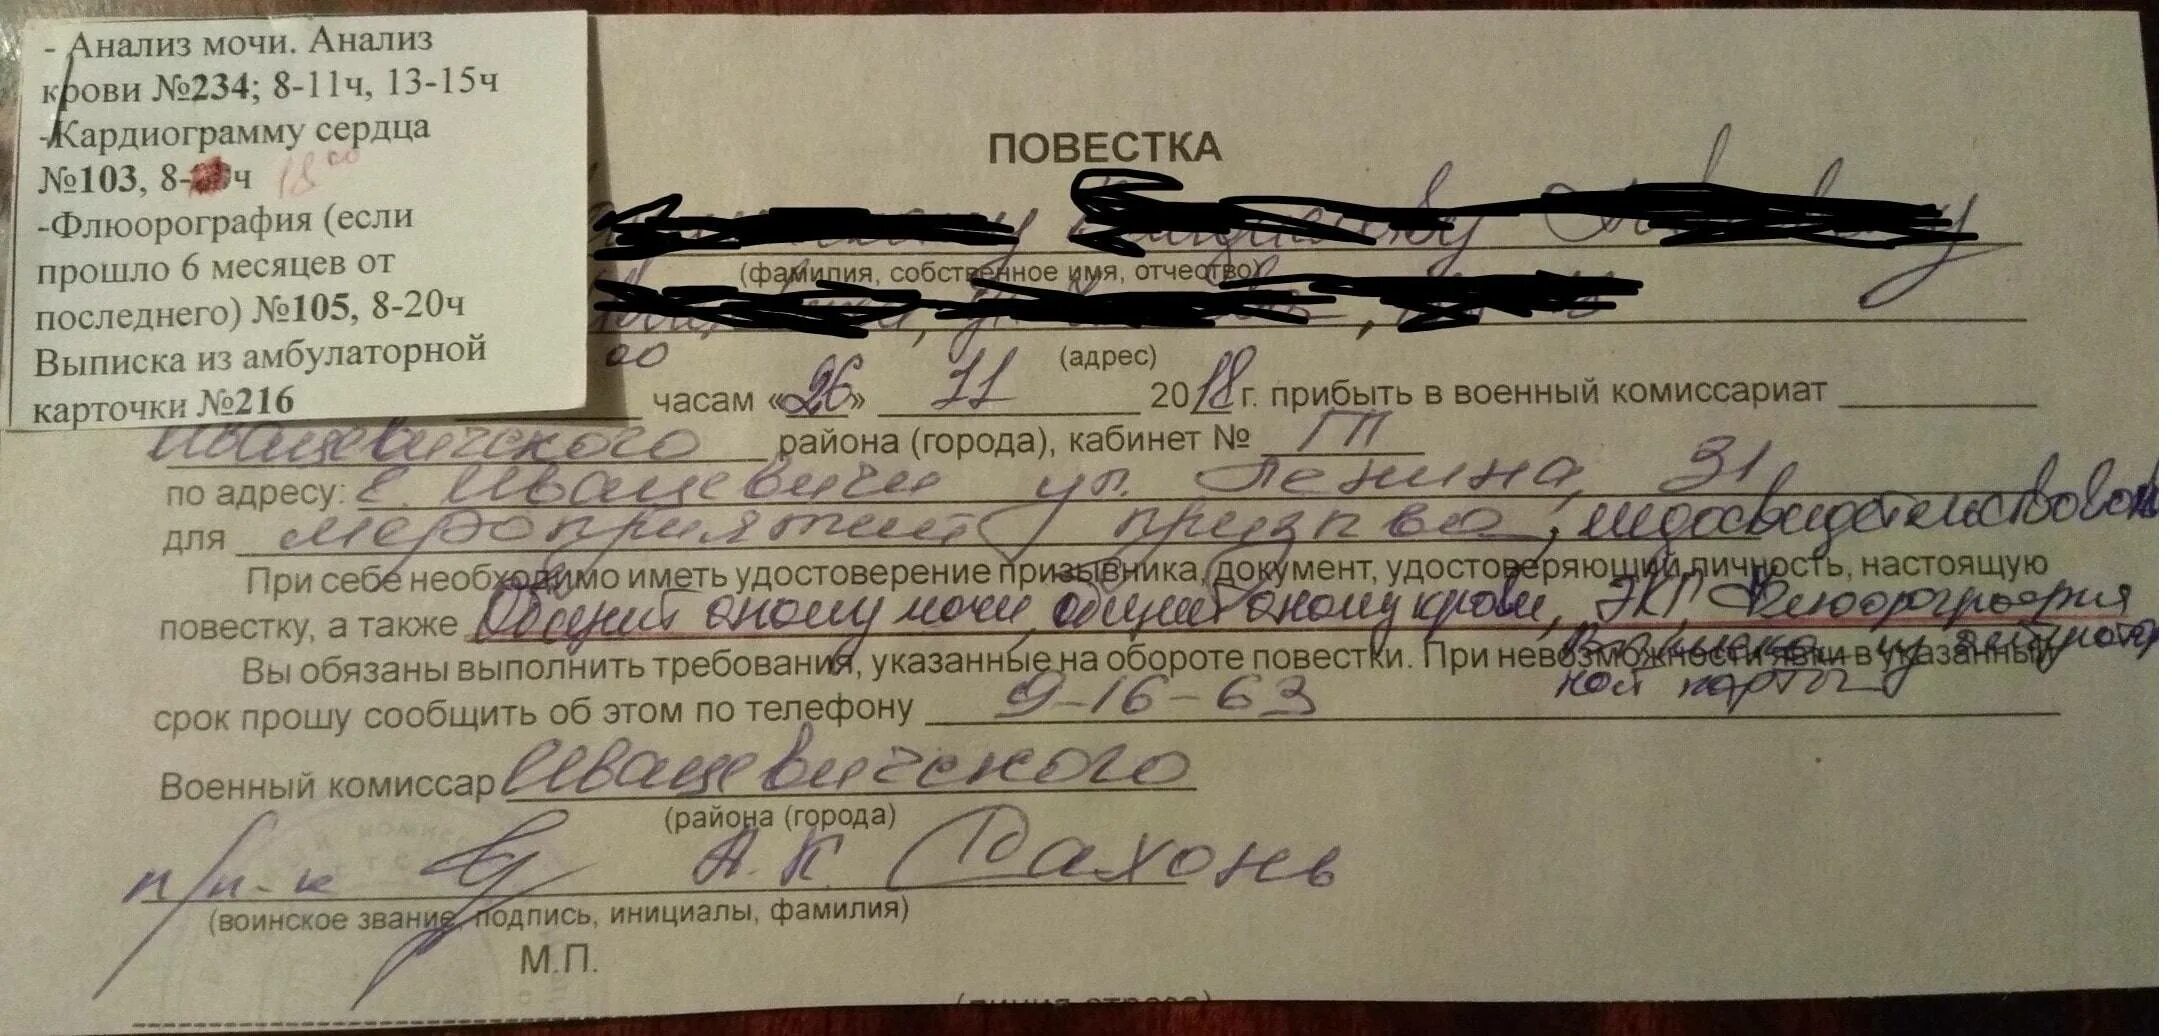 - Анализ мочи. Анализ
крови №234; 8-11ч, 13-15ч
-Кардиограмму сердца
№103, 8- ч 18 00
-Флюорография (если
прошло 6 месяцев от
последнего) №105, 8-20ч
Выписка из амбулаторной
карточки №216
ПОВЕСТКА
(фамилия, собственное имя, отчество)
(адрес)
00
часам «26» 11 2018г. прибыть в военный комиссариат
Ивацевичского района (города), кабинет № ГП
по адресу: г. Ивацевичи ул. Ленина, 31
для мероприятий призыва, медосвидетельствован
При себе необходимо иметь удостоверение призывника, документ, удостоверяющий личность, настоящую
повестку, а также Общий анализ мочи, общий анализ крови, ЭКГ, Флюорография
Выписка из амбулатор
ной карты
Вы обязаны выполнить требования, указанные на обороте повестки. При невозможности явки в указанный
срок прошу сообщить об этом по телефону 9-16-63
Военный комиссар Ивацевичского
(района (города)
п/п-к А.К. Рахонь
(воинское звание, подпись, инициалы, фамилия)
М.П.
(линия отреза)